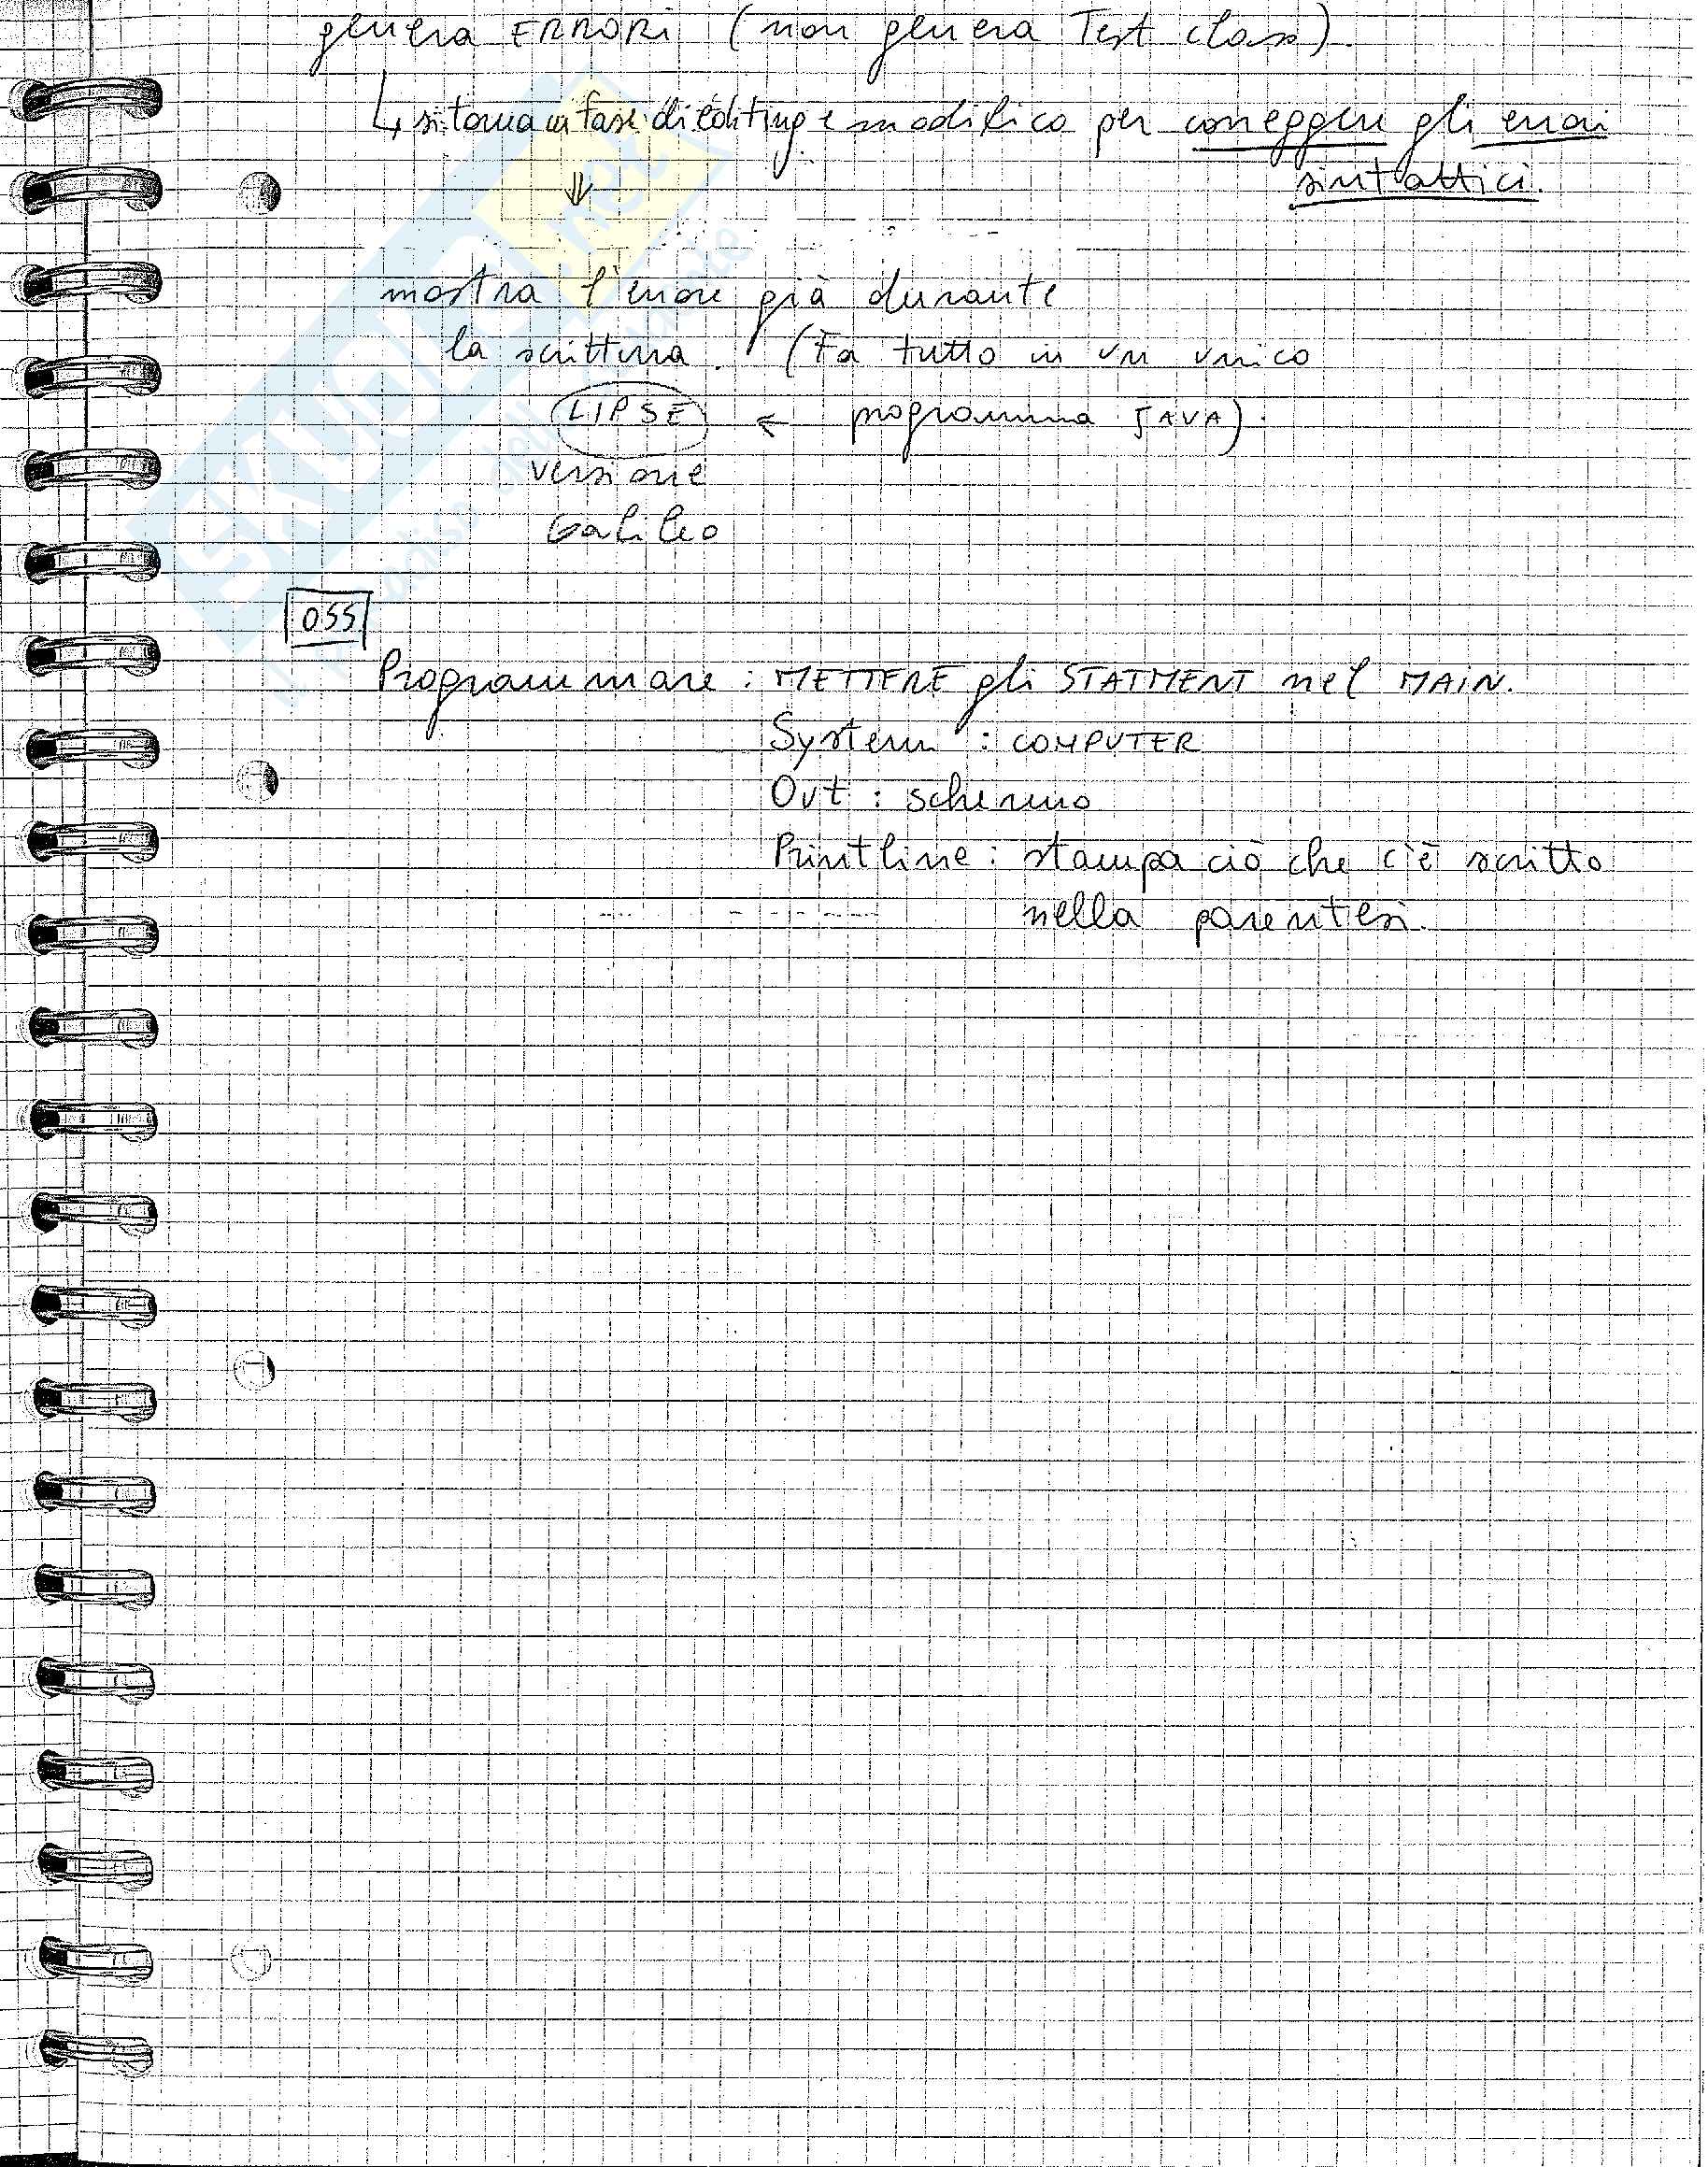 genera ERRORI (non genera Test class).
↳ si torna in fase di editing e modifico per correggere gli errori
sintattici.
⇓
mostra l'errore già durante
la scrittura. (Fa tutto in un unico
LIPSE ← programma JAVA).
versione
Galileo
OSS
Programmare : METTERE gli STATMENT nel MAIN.
System : COMPUTER
Out : schermo
Printline : stampa ciò che c'è scritto
nella parentesi.
SKUOLA.net